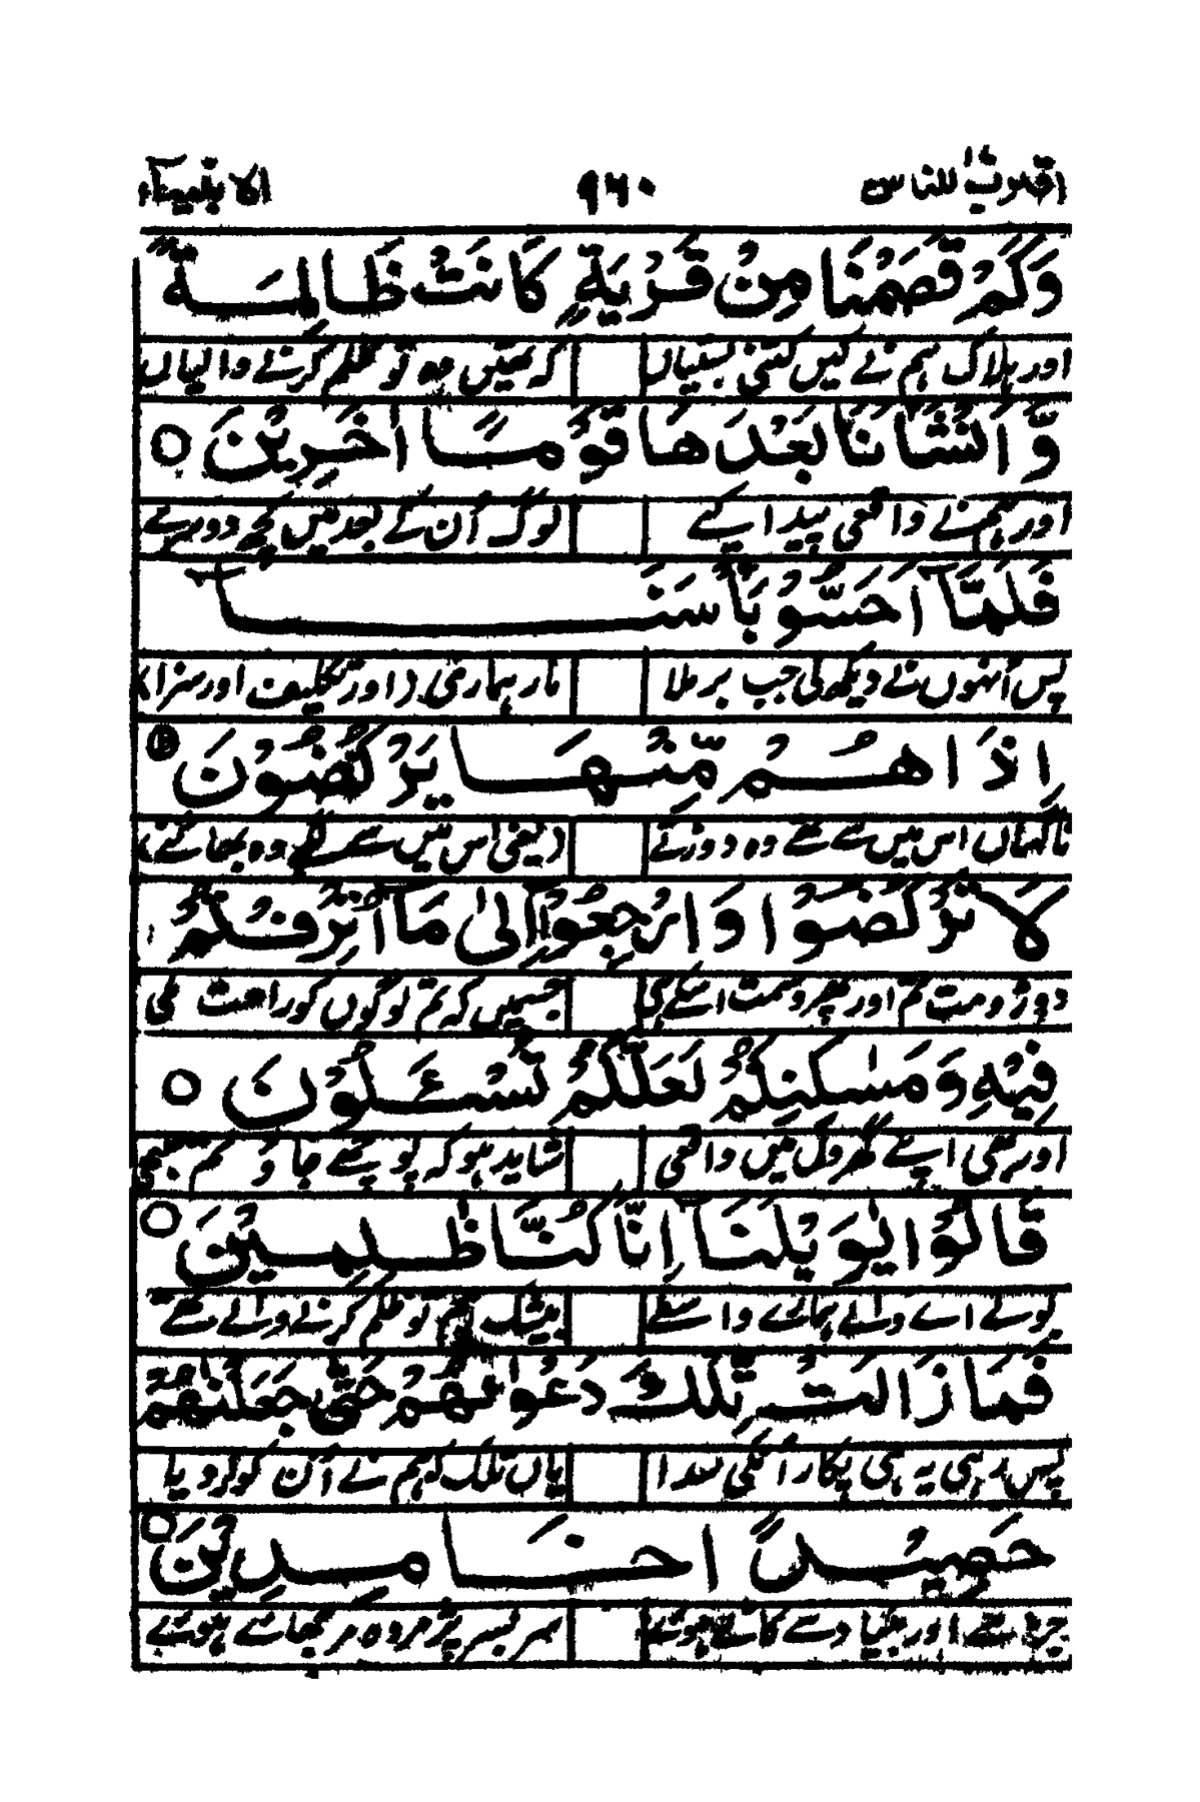 اقترب للناس ۹۶۰ الانبیآء
وَكَمْ قَصَمْنَا مِنْ قَرْيَةٍ كَانَتْ ظَالِمَةً
اور ہلاک ہم نے کیں کتنی بستیاں کہ تھیں وہ تو ظلم کرنے والیاں
وَّ اَنْشَاْنَا بَعْدَهَا قَوْمًا اٰخَرِيْنَ ○
اور ہم نے واقعی پیدا کیے لوگ اُن کے بعد میں کچھ دوسرے
فَلَمَّآ اَحَسُّوْ بَاْسَنَآ
پس اُنہوں نے دیکھ لی جب بر ملا مار ہماری (اور تکلیف اور سزا)
اِذَا هُمْ مِّنْهَا يَرْكُضُوْنَ ○
ناگہاں اس میں سے تھے وہ دوڑتے (یعنی اس میں سے تھے وہ بھاگتے)
لَا تَرْكُضُوْا وَ ارْجِعُوْٓا اِلٰى مَآ اُتْرِفْتُمْ
دوڑو مت تم اور پھرو سمت اسکے ہی جسمیں کہ تم لوگوں کو راحت ملی
فِيْهِ وَ مَسٰكِنِكُمْ لَعَلَّكُمْ تُسْـَٔلُوْنَ ○
اور اپنے گھروں میں واقعی شاید ہو کہ پوچھے جاؤ تم سبھی
قَالُوْا يٰوَيْلَنَآ اِنَّا كُنَّا ظٰلِمِيْنَ ○
بولے اے وائے ہمارے واسطے بیشک ہم تو ظلم کرنے والے تھے
فَمَا زَالَتْ تِّلْكَ دَعْوٰىهُمْ حَتّٰى جَعَلْنٰهُمْ
پس رہی یہ ہی پکار اُنکی سدا یاں تلک کہ ہم نے اُن کو کر دیا
حَصِيْدًا خَامِدِيْنَ ○
اور کاٹے ہوئے پژمردہ مرجھائے ہوئے